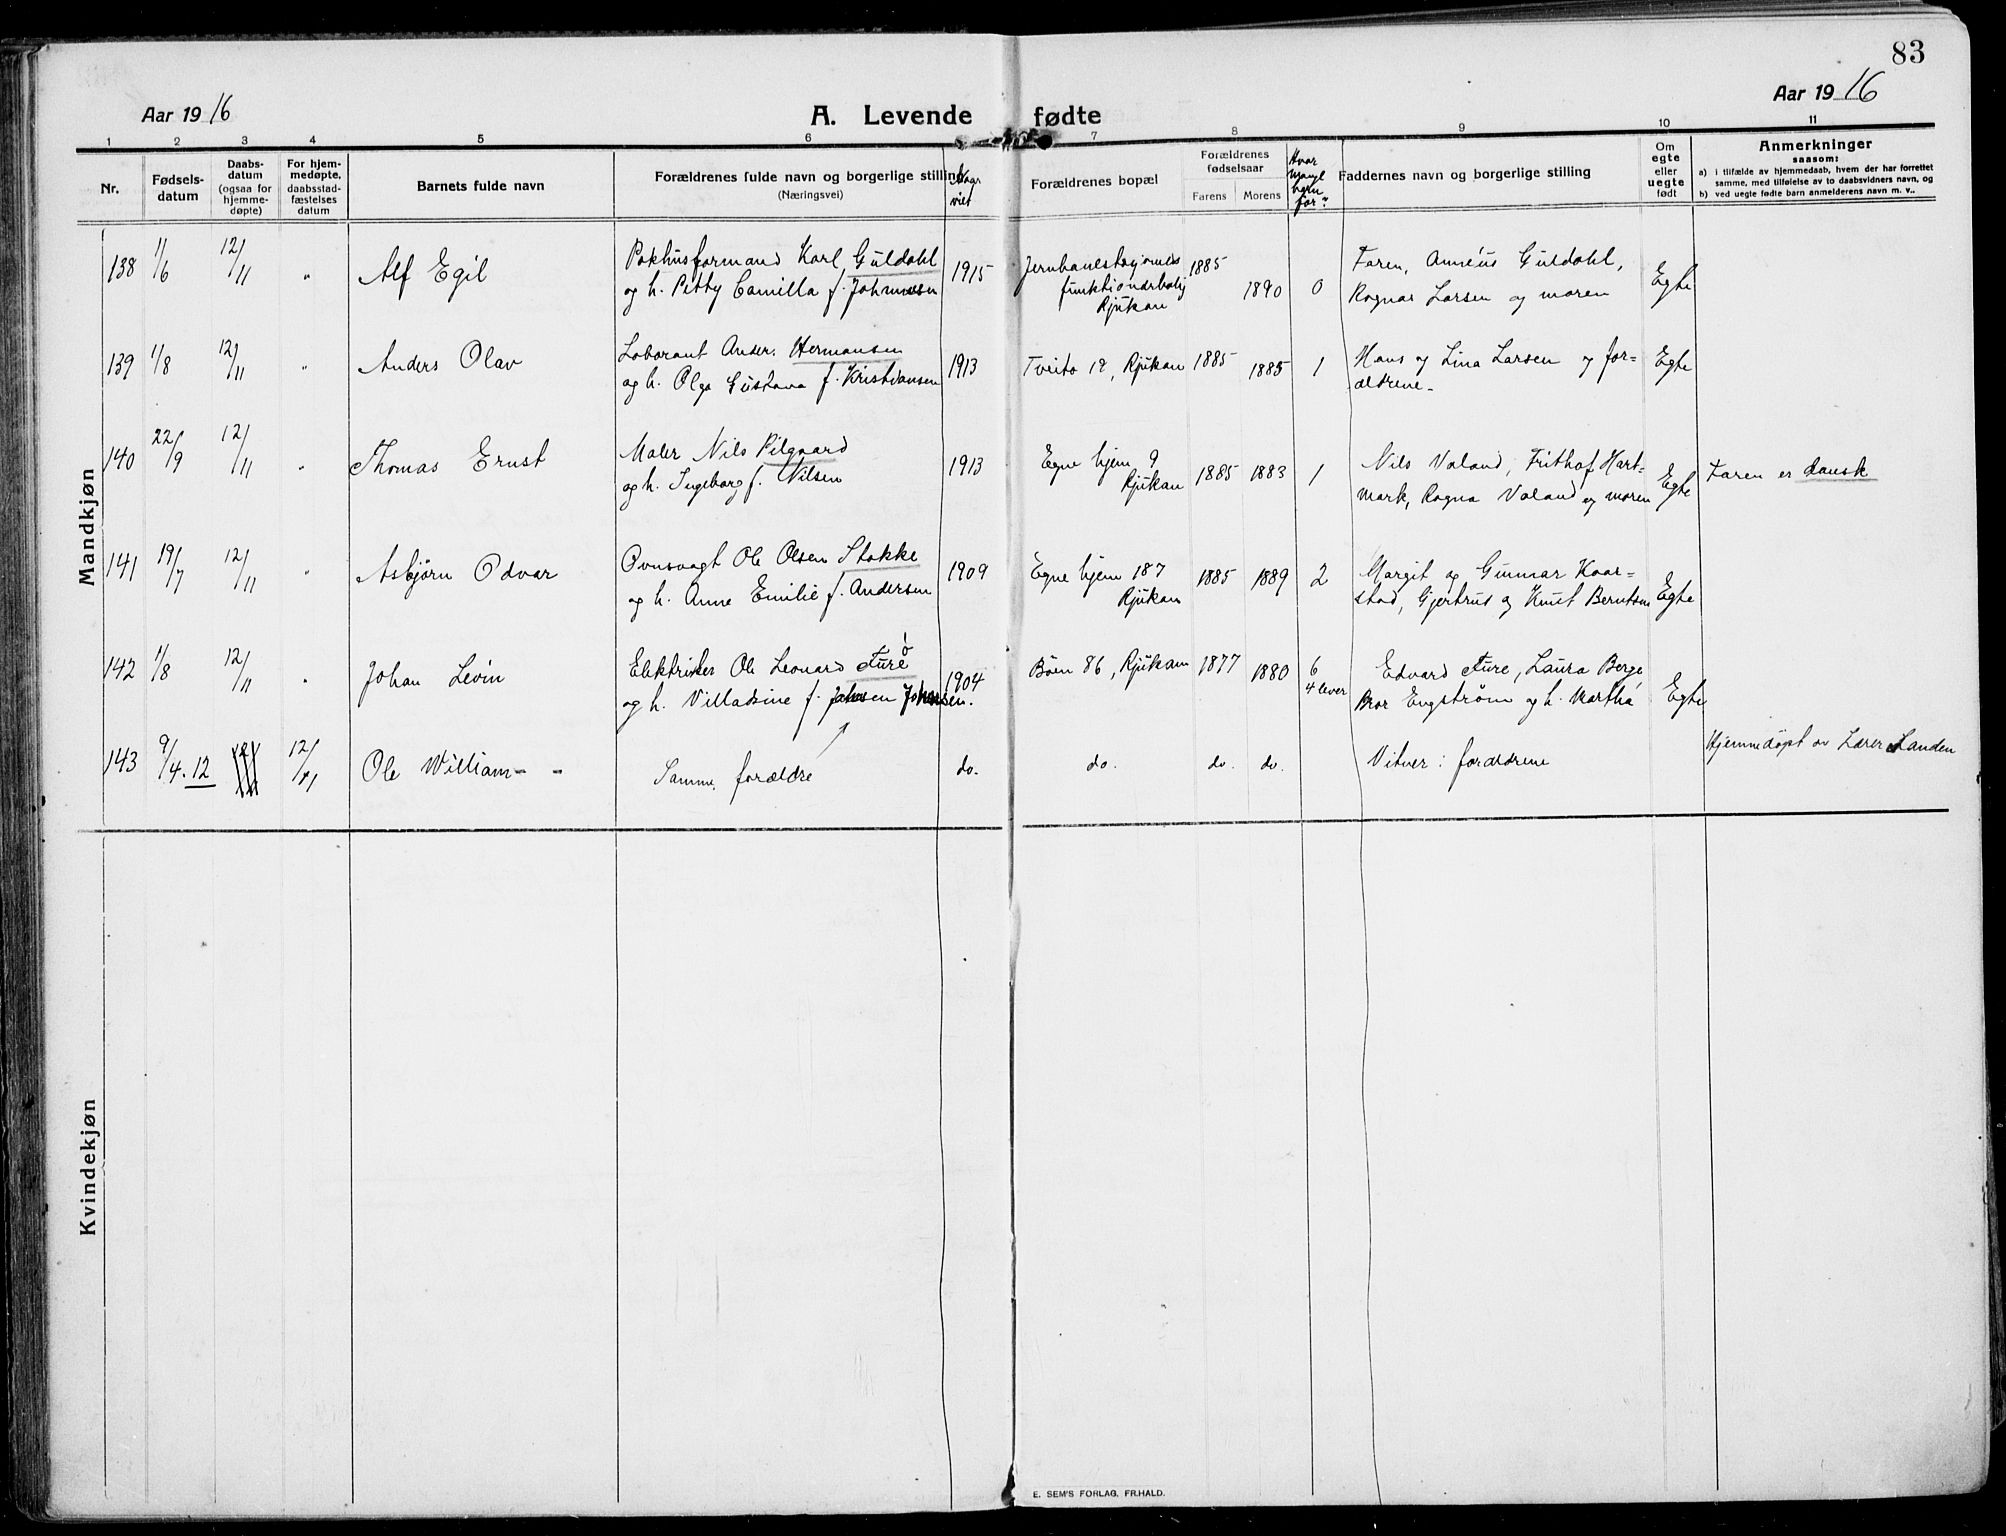 83
Aar 1916
A. Levende fødte
Aar 1916
1 2 3 4 5 6 7 8 9 10 11
Nr.
Fødsels-
datum
Daabs-
datum
(ogsaa for
hjemme-
døpte)
For hjem-
medøpte,
daabsstad-
fæstelses
datum
Barnets fulde navn
Forældrenes fulde navn og borgerlige stilling
(Næringsvei)
Naar
viet
Forældrenes bopæl
Forældrenes
fødselsaar
Farens Morens
Hvor
mange
barn
før?
Faddernes navn og borgerlige stilling
Om
egte
eller
uegte
født
Anmerkninger
saasom:
a) i tilfælde av hjemmedaab, hvem der har forrettet
samme, med tilføielse av to daabsvidners navn, og
b) ved uegte fødte barn anmelderens navn m. v..
Mandkjøn
138 1/6 12/11 " Alf Egil
Pakhusformand Karl Guldahl
og h. Petty Camilla f. Johannesen
1915
Jernbanestasjonens
funktionærbolig
Rjukan
1885 1890 0
Faren, Annéus Guldahl,
Ragnar Larsen og moren
Egte
139 1/8 12/11 " Anders Olav
Laborant Anders Hermansen
og h. Olga Gustava f. Kristiansen
1913
Tveito 12, Rjukan
1885 1885 1
Hans og Lina Larsen og for-
ældrene
Egte
140 22/9 12/11 " Thomas Ernst
Maler Nils Pilgaard
og h. Ingeborg f. Nilsen
1913
Egne hjem 9
Rjukan
1885 1883 1
Nils Valand, Frithof Hart-
mark, Ragna Valand og moren
Egte
Faren er dansk
141 19/7 12/11 " Asbjørn Odvar
Ovnsvagt Ole Olsen Stokke
og h. Anne Emilie f. Andersen
1909
Egne hjem 187
Rjukan
1885 1889 2
Margit og Gunnar Kaar-
stad, Gjertrud og Knut Berntsen
Egte
142 1/8 12/11 " Johan Levin
Elektriker Ole Leonard Fure
og h. Villadsine f. Johansen.
1904
Bøen 86, Rjukan
1877 1880 6
4 lever
Edvard Fure, Laura Berge,
Bror Engstrøm og h. Martha
Egte
143 9/4.12 12/11 12/11 Ole William - -
Samme forældre
do. do. do. do.
Vitner: forældrene
Hjemmedøpt av Lærer Landen
Kvindekjøn
E. SEM'S FORLAG, FR.HALD.